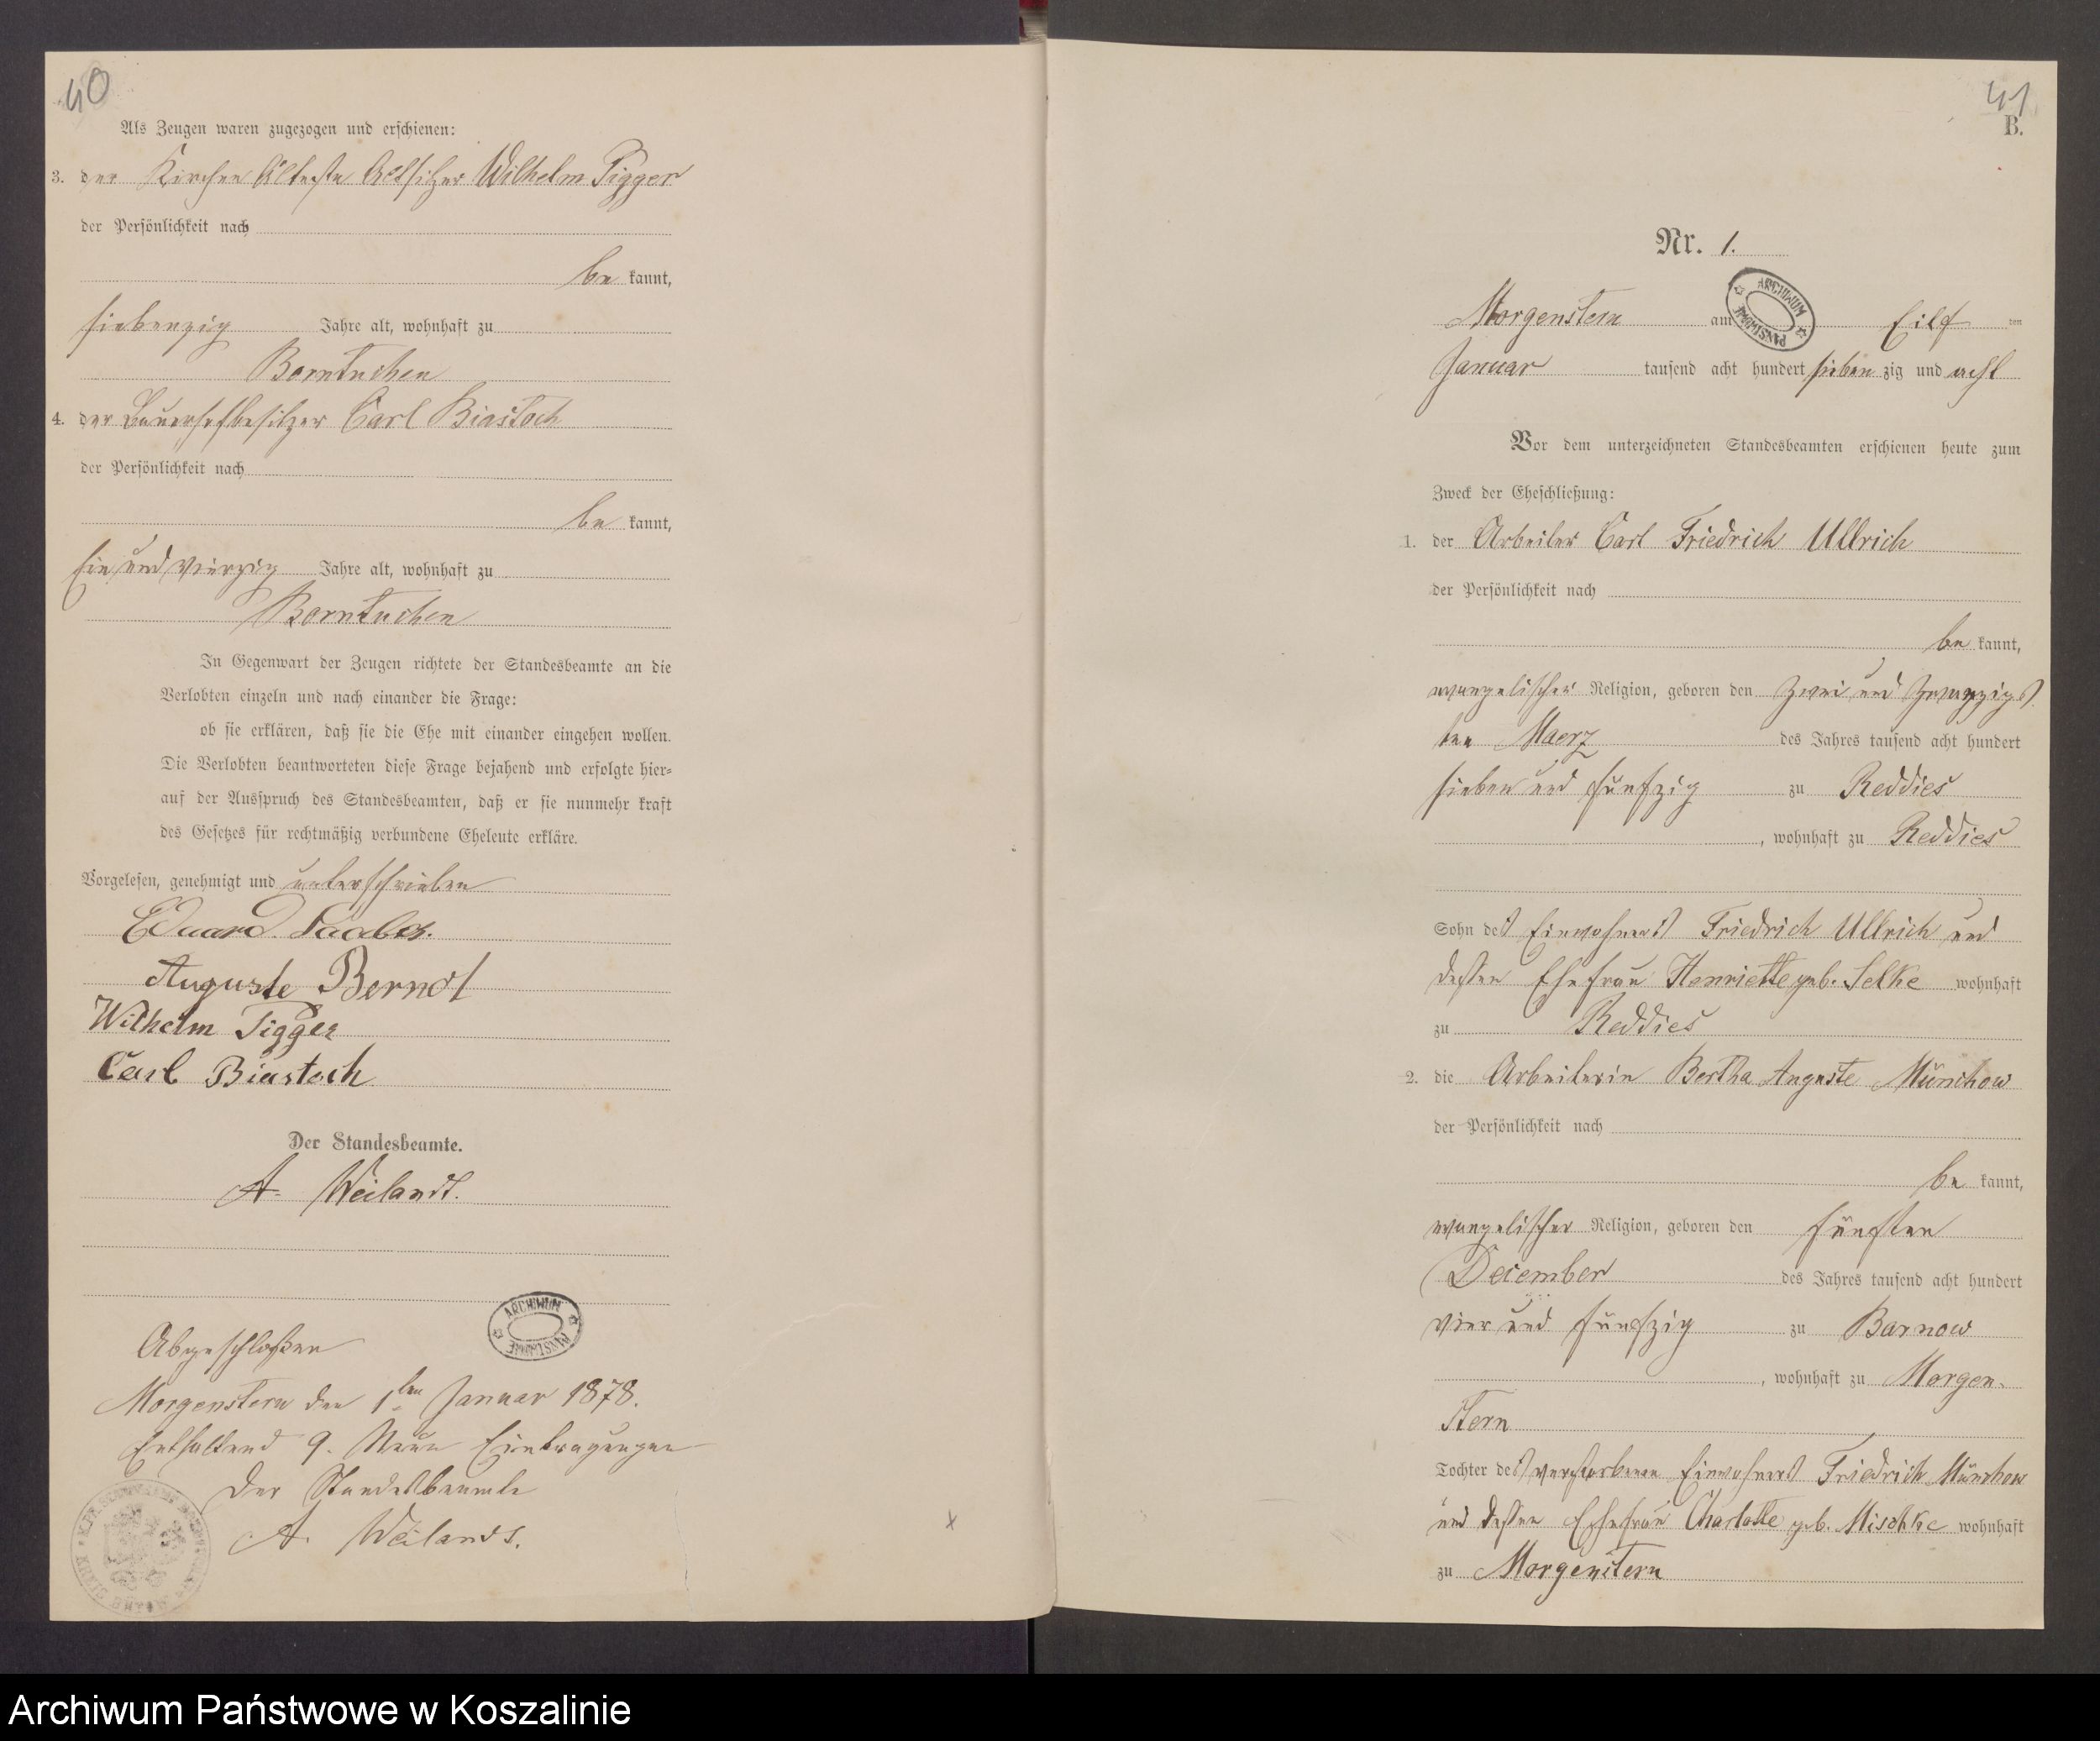 40
Als Zeugen waren zugezogen und erschienen:
3. der Kirchen Älteste Altsitzer Wilhelm Pigger
der Persönlichkeit nach
be kannt,
siebenzig Jahre alt, wohnhaft zu
Borntuchen
4. der Bauerhofbesitzer Carl Biastoch
der Persönlichkeit nach
be kannt,
Ein und vierzig Jahre alt, wohnhaft zu
Borntuchen
In Gegenwart der Zeugen richtete der Standesbeamte an die
Verlobten einzeln und nach einander die Frage:
ob sie erklären, daß sie die Ehe mit einander eingehen wollen.
Die Verlobten beantworteten diese Frage bejahend und erfolgte hier-
auf der Ausspruch des Standesbeamten, daß er sie nunmehr kraft
des Gesetzes für rechtmäßig verbundene Eheleute erkläre.
Vorgelesen, genehmigt und unterschrieben
Eduard
Auguste Berndt
Wilhelm Pigger
Carl Biastoch
Der Standesbeamte.
A. Weilandt.
ARCHIWUM PAŃSTWOWE
Abgeschloßen
Morgenstern den 1ten Januar 1878.
Enthaltend 9. Neun Eintragungen
Der Standesbeamte
A. Weilandt.
41
B.
Nr. 1.
Morgenstern am Eilf ten
ARCHIWUM PAŃSTWOWE
Januar tausend acht hundert sieben zig und acht
Vor dem unterzeichneten Standesbeamten erschienen heute zum
Zweck der Eheschließung:
1. der Arbeiter Carl Friedrich Ullrich
der Persönlichkeit nach
be kannt,
evangelischer Religion, geboren den Zwei und zwanzigs
ten Maerz des Jahres tausend acht hundert
sieben und fünfzig zu Reddies
, wohnhaft zu Reddies
Sohn des Einwohners Friedrich Ullrich und
dessen Ehefrau Henriette geb. Selke wohnhaft
zu Reddies
2. die Arbeiterin Bertha Auguste Münchow
der Persönlichkeit nach
be kannt,
evangelischer Religion, geboren den fünften
December des Jahres tausend acht hundert
vier und fünfzig zu Barnow
, wohnhaft zu Morgen-
stern
Tochter des verstorbenen Einwohners Friedrich Münchow
und dessen Ehefrau Charlotte geb. Mischke wohnhaft
zu Morgenstern
Archiwum Państwowe w Koszalinie